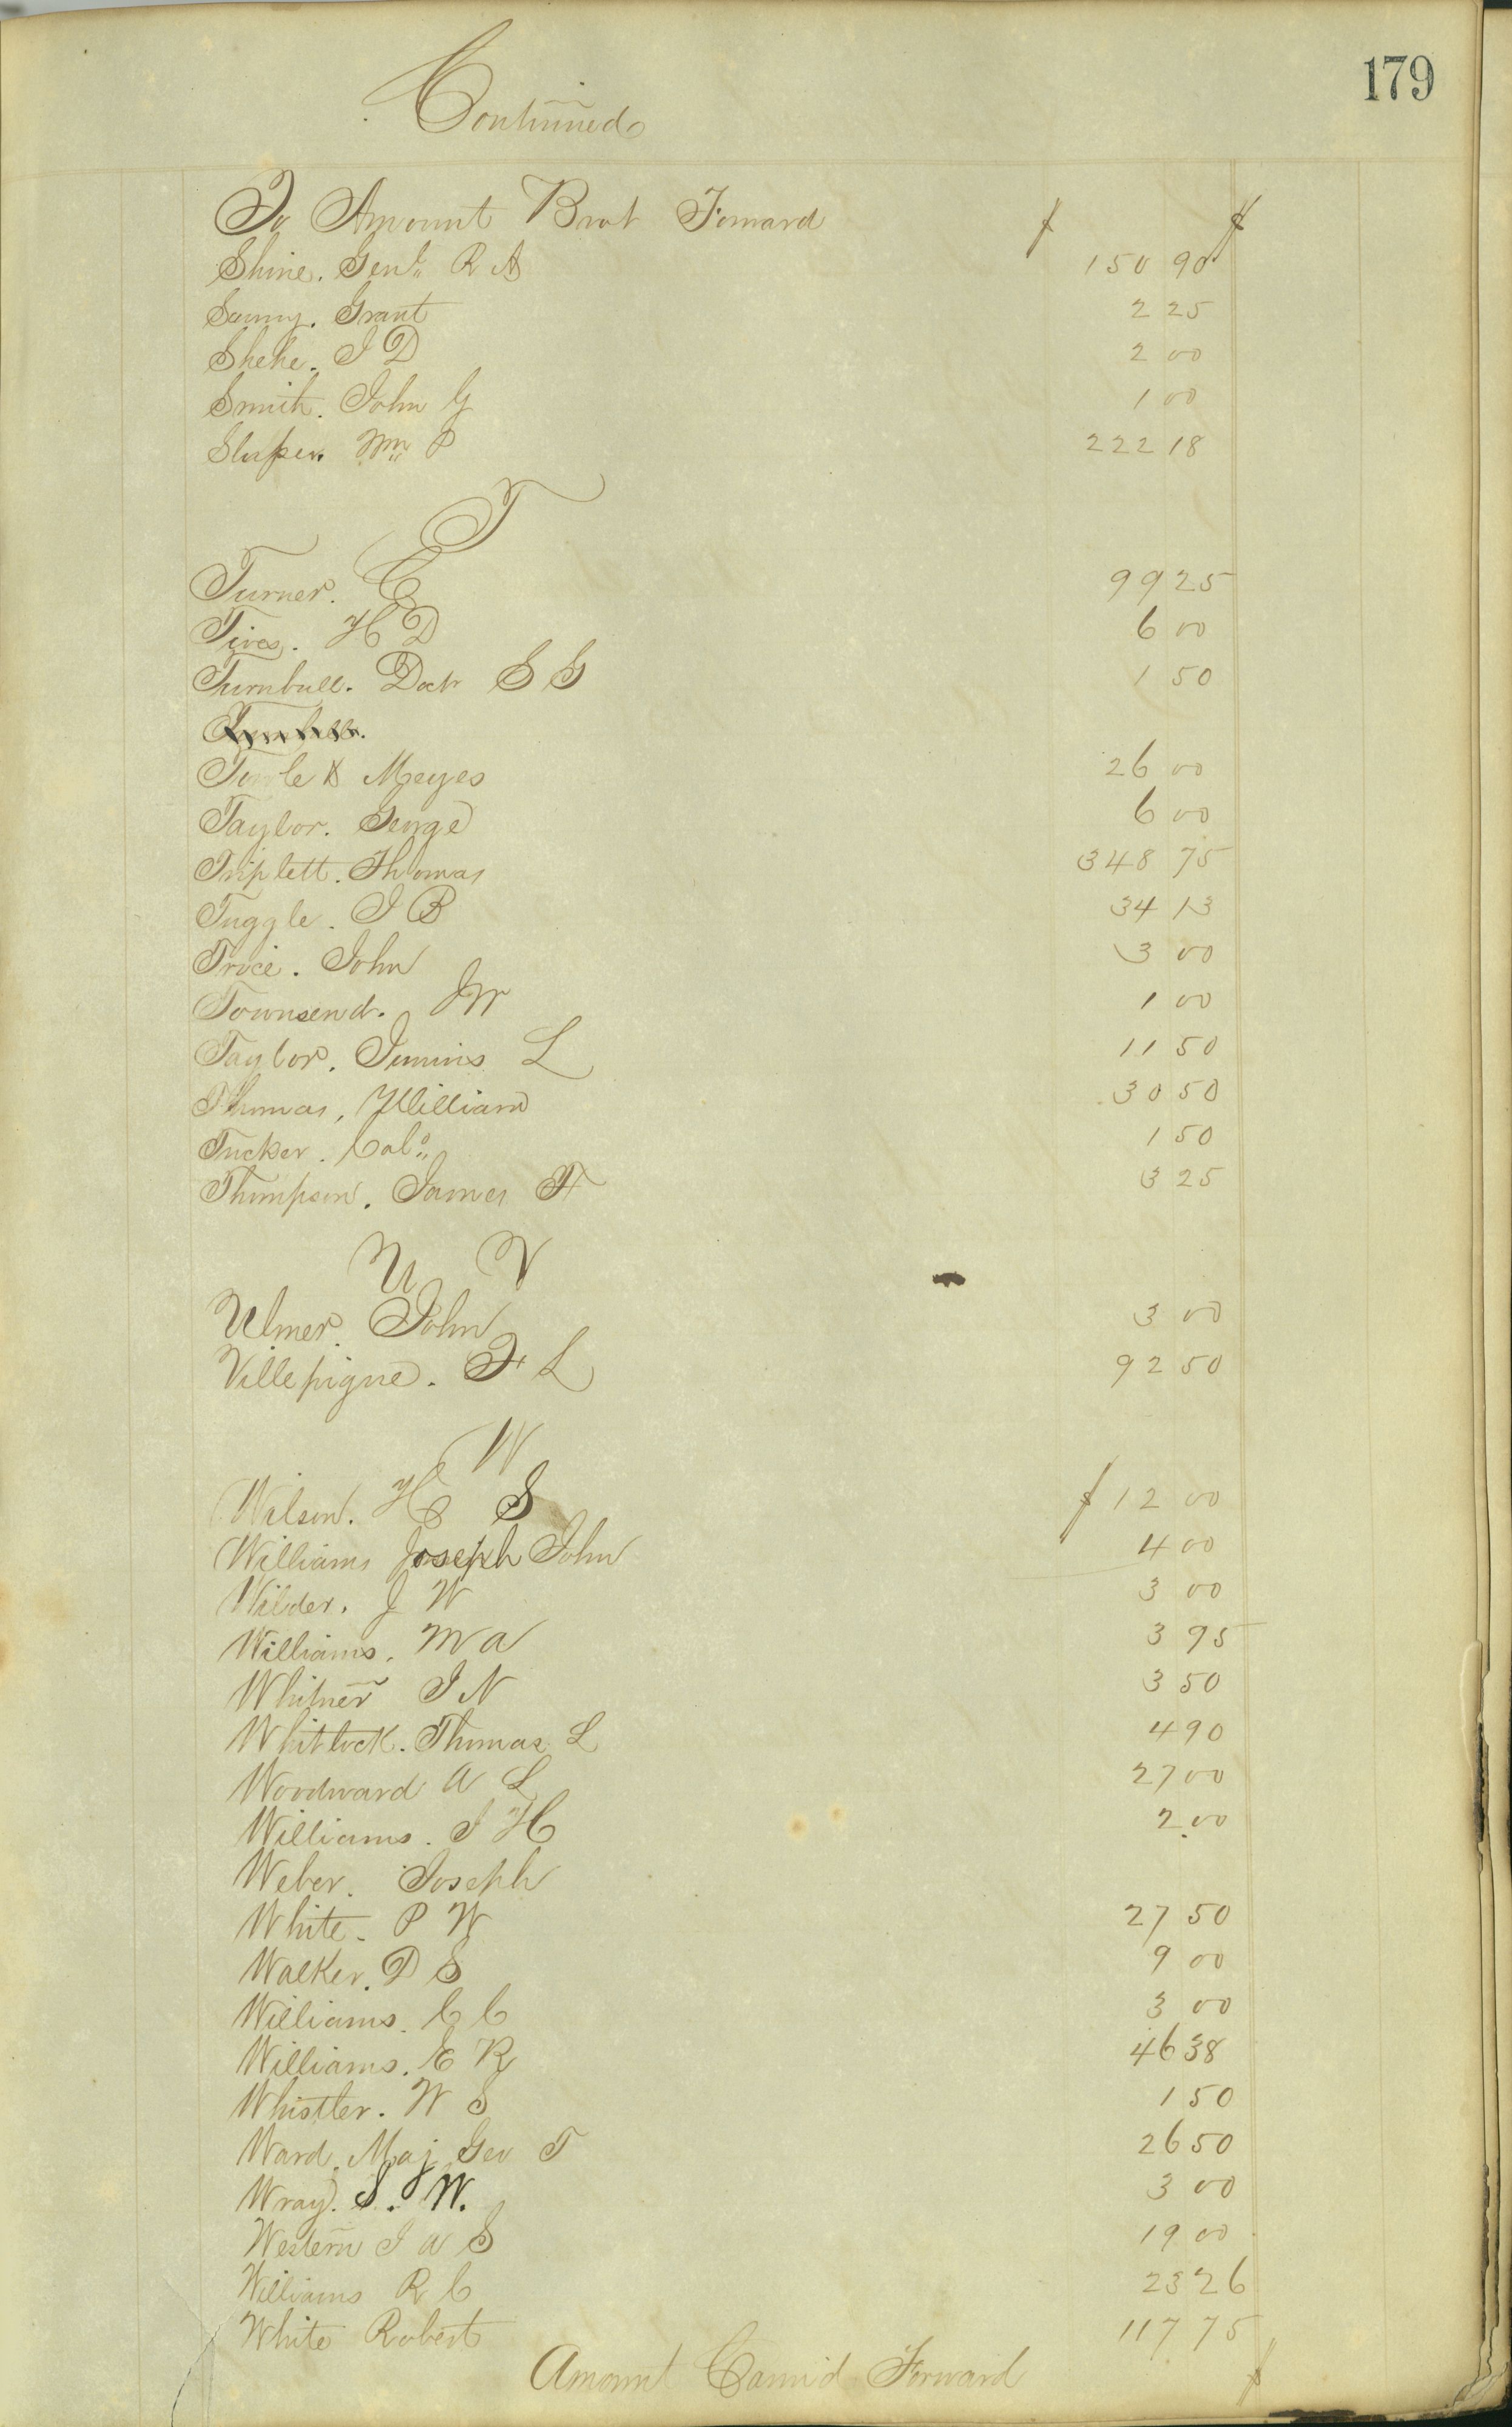 179
Continued
To Amount Brot Forward $ $
Shine. Genl. R A 150 90
Grant 2 25
Shehe. I D 2 00
Smith. John G 1 00
Wm P 222 18
T
Turner. C 99 25
H D 6 00
Turnbull. Doctr S G 1 50
& Meyes 26 00
Taylor. George 6 00
Triplett. Thomas 348 75
Tuggle. I B 34 13
Trice. John 3 00
Townsend. J W 1 00
Taylor. L 11 50
Thomas, William 30 50
Tucker. Colo. 1 50
Thompson. James F 3 25
U V
Ulmer. John 3 00
Villepigne. F L 92 50
W
Wilson. H S $ 12 00
Williams Joseph John 4 00
Wilder. J W 3 00
Williams. M A 3 95
Whitner I N 3 50
Whitlock. Thomas L 4 90
Woodward A L 27 00
Williams. I H 2.00
Weber. Joseph
White. P W 27 50
Walker. D S 9 00
Williams. C C 3 00
Williams. E R 46 38
Whistler. W S 1 50
Ward. Maj Geo T 26 50
Wray. S. W. 3 00
Western I A S 19 00
Williams R C 23 26
White Robert 117 75
Amount Carri'd Forward $